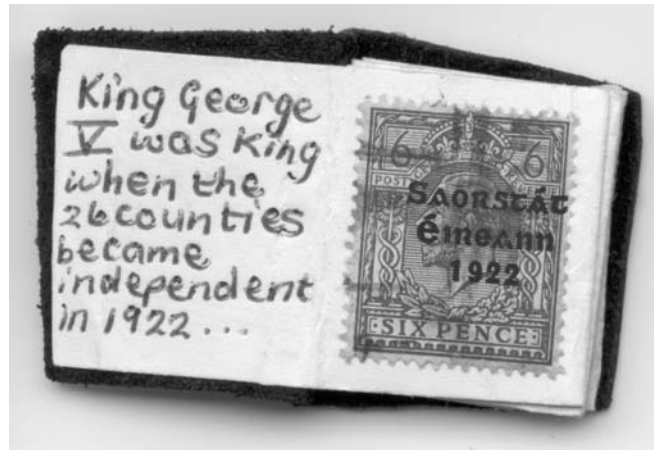 King George
V was King
when the
26 counties
became
independent
in 1922...
6 6
POST
Saorstát
Éireann
1922
SIX PENCE